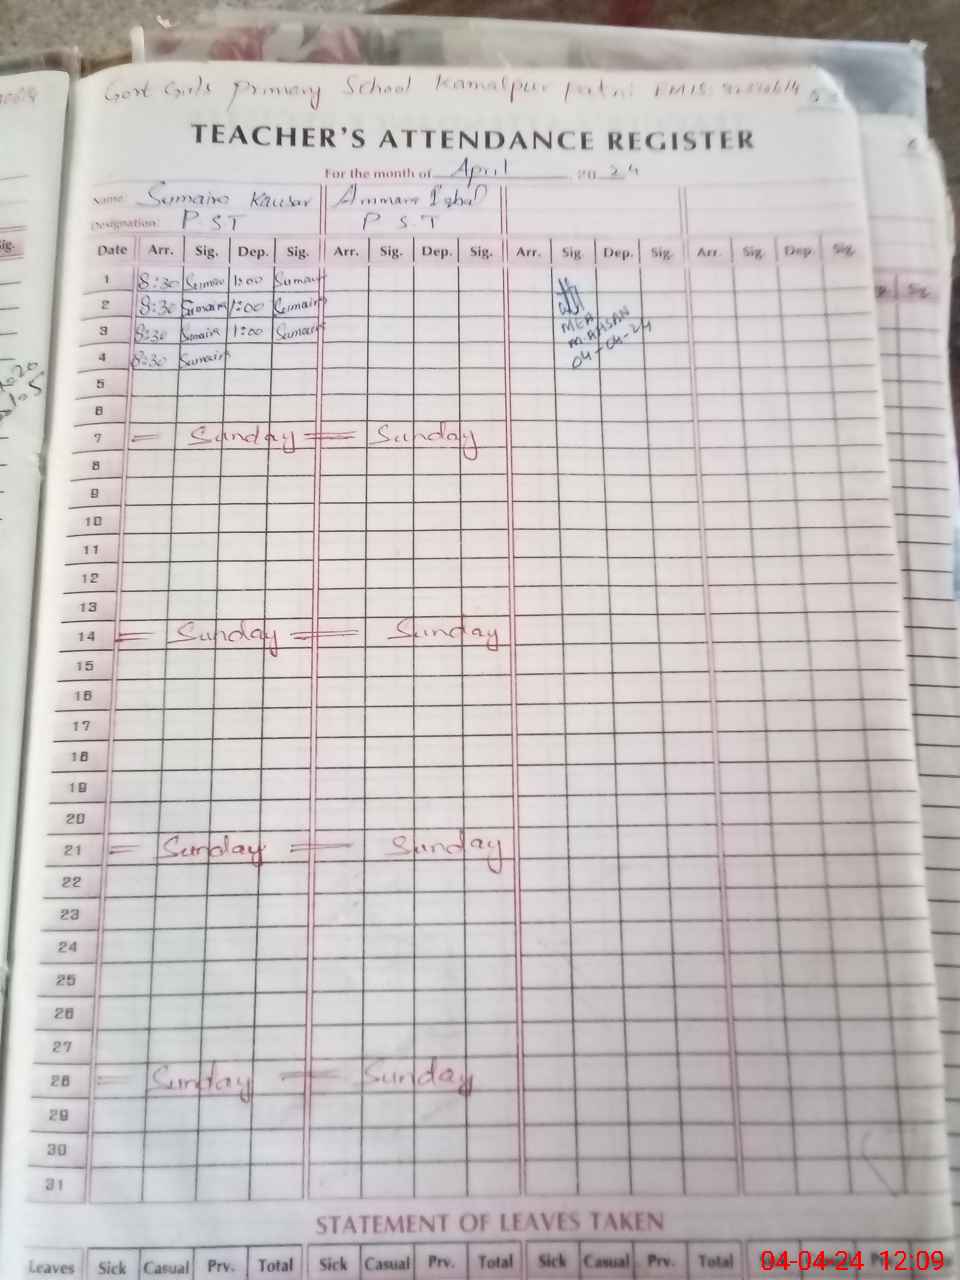 Govt Girls Primary School Kamalpur EMIS
TEACHER'S ATTENDANCE REGISTER
For the month of April 2024
Name: Sumaira Kausar Ammara Iqbal
Designation: P.ST P S.T
Date Arr. Sig. Dep. Sig. Arr. Sig. Dep. Sig. Arr. Sig. Dep. Sig. Arr. Sig. Dep. Sig.
1 8:30 Sumaira 1:00 Sumaira
2 8:30 Sumaira 1:00 Sumaira
3 8:30 Sumaira 1:00 Sumaira
4 8:30 Sumaira
MEA
M. AHSAN
04-04-24
5
6
7 = Sunday = Sunday
8
9
10
11
12
13
14 = Sunday = Sunday
15
16
17
18
19
20
21 = Sunday = Sunday
22
23
24
25
26
27
28 = Sunday = Sunday
29
30
31
STATEMENT OF LEAVES TAKEN
Leaves Sick Casual Prv. Total Sick Casual Prv. Total Sick Casual Prv. Total
04-04-24 12:09